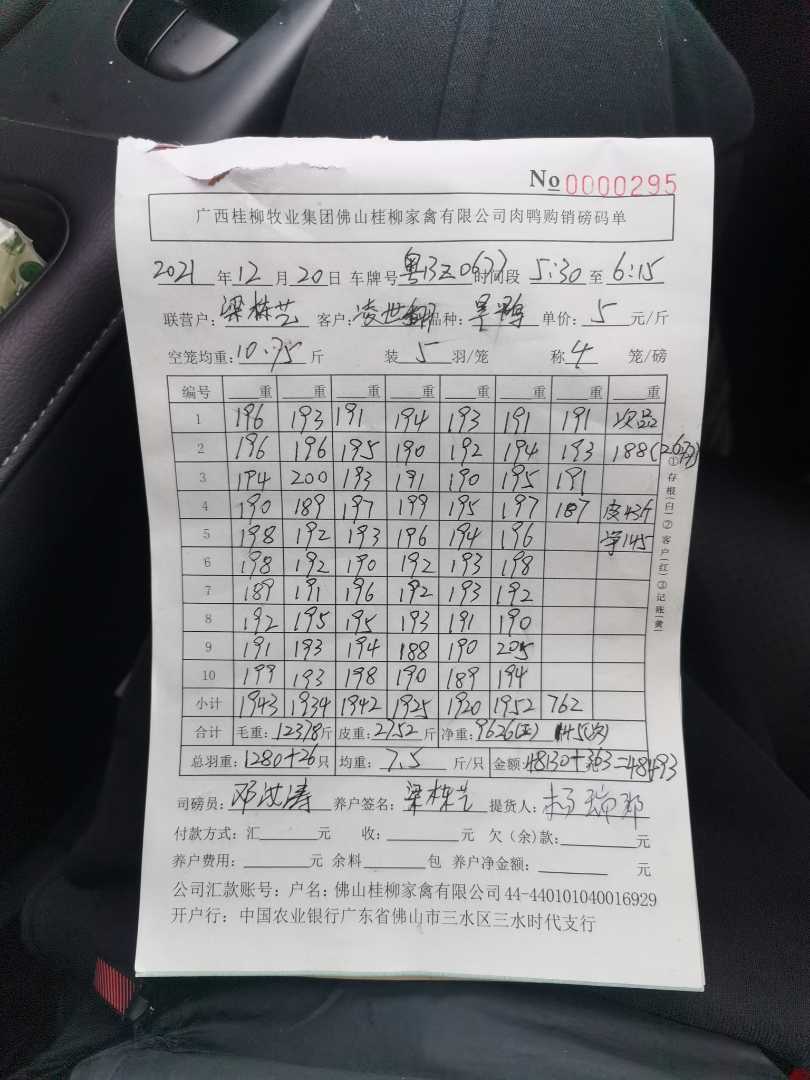 No 0000295
广西桂柳牧业集团佛山桂柳家禽有限公司肉鸭购销磅码单
2021 年 12 月 20 日 车牌号 时间段 5:30 至 6:15
联营户: 梁栋艺 客户: 凌世 品种: 单价: 5 元/斤
空笼均重: 10.75 斤 装 5 羽/笼 称 4 笼/磅
编号 重 重 重 重 重 重 重 重
1 196 193 191 194 193 191 191 次品
2 196 196 195 190 192 194 193 188(26只)
3 194 200 193 191 190 195 191
4 190 189 197 199 195 197 187 皮43斤
5 198 192 193 196 194 196 净145
6 198 192 190 192 193 198
7 189 191 196 192 193 192
8 192 195 195 193 191 190
9 191 193 194 188 190 205
10 199 193 198 190 189 194
小计 1943 1934 1942 1925 1920 1952 762
合计 毛重: 12378 斤 皮重: 2752 斤 净重: 9626(正) 145(次)
总羽重: 1280+26 只 均重: 7.5 斤/只 金额: 48130+363=48493
司磅员: 养户签名: 梁栋艺 提货人: 杨瑞邦
付款方式: 汇 元 收: 元 欠(余)款: 元
养户费用: 元 余料 包 养户净金额: 元
公司汇款账号: 户名: 佛山桂柳家禽有限公司 44-440101040016929
开户行: 中国农业银行广东省佛山市三水区三水时代支行
①存根(白)②客户(红)③记账(黄)